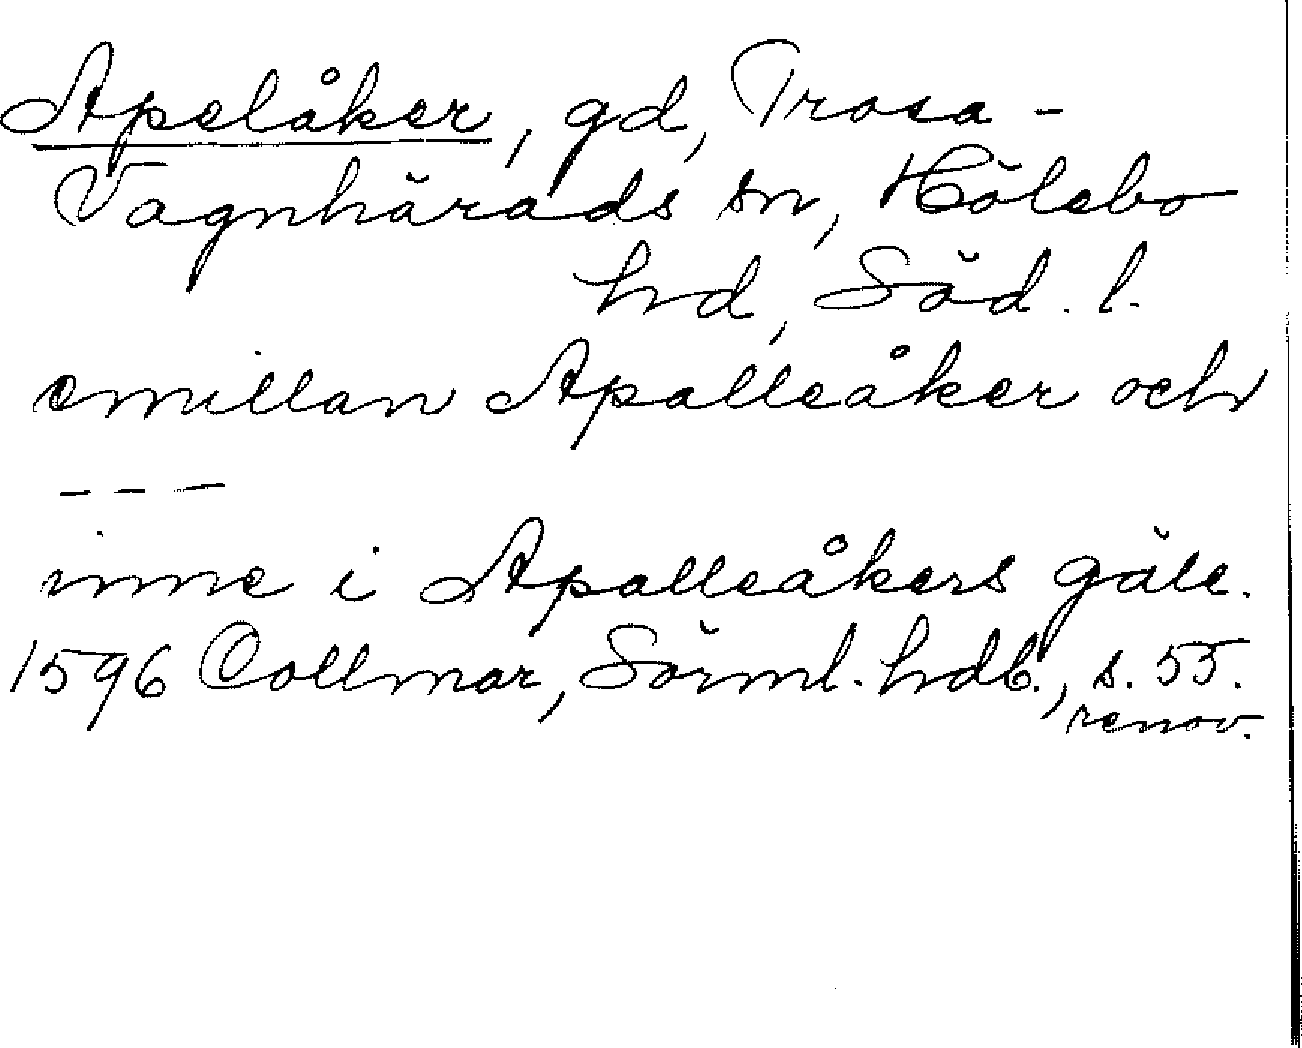 Apelåker, gd, Trosa-
Vagnhärads sn, Hölebo
hd, Söd. l.
emillan Apalleåker och
---
inne i Apalleåkers gäle.
1596 Collmar, Sörml. hdb., s. 55.
renov.